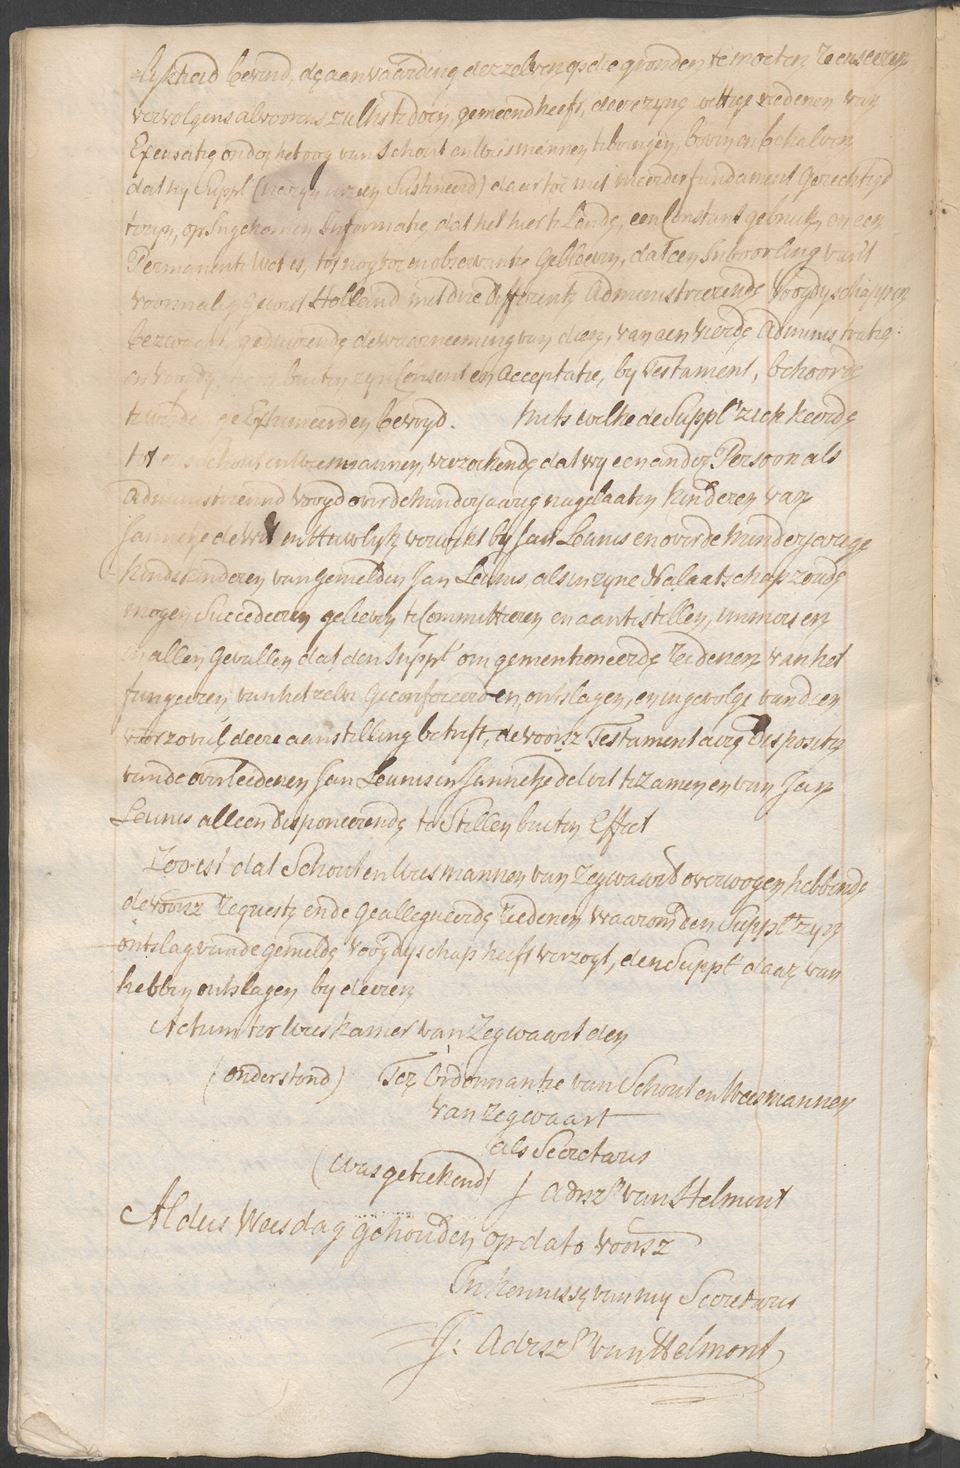 =lijkheid bevind, de aanvaarding derzelven op de gronden te moeten
vervolgens alvoorens zulks te doen, gemeend heeft, deeze zyne wettige redenen van
Excusatie onder het oog van Schout en Weesmannen te brengen, en behalven
dat hy Suppl (naer zyn Sustineerd) daar toe met meerder fundament Gerechtigd
te zyn, op Ingekomen Informatie, dat het hier te Lande, een Constant gebruik, en een
Permanente Wet is, tot nog toe in observantie Gebleeven, dat een Inboorling van't
voormalig Gewest Holland met drie differente Administreerende Voogdyschappen
bezwaard, geduurende de waarneeming van dien, van een vierde Administratie
en voogdy, buiten zyn Consent en Acceptatie, by Testament, behoorde
te worden geExcuseerd en bevryd. Mits welke de Supplt zich keerde
tot en Schout en Weesmannen, verzoekende dat wy een ander Persoon als
Administreerend Voogd over de minderjaarig nagelaaten kinderen van
Janneke de Wit in Huwlyk verwekt by Jan Leunis en over de minderjarige
kindskinderen van gemelden Jan Leunis als in zyne Nalaatschap zoude
mogen Succedeeren gelieven te Committeeren en aantestellen, immers en
in allen Gevallen dat den Supplt om gementioneerde Redenen van het
fungeeren van het zelve en ontslagen, en ingevolge van dien
voor zo veel deeze aanstelling betreft, de voorsz Testamentaire dispositie
van de overleedenen Jan Leunis en Janneke de Wit te zamen en van Jan
Leunis alleen disponeerende te Stellen buiten Effect
Zoo ist dat Schout en Weesmannen van Zegwaard overwogen hebbende
de voorsz Requeste ende Geallegueerde Redenen waarom den Supplt zyn
ontslag van de gemelde voogdyschap heeft verzogt, den Supplt daar van
hebben ontslagen by deezen
Actum ter Weeskamer van Zegwaart den
(onderstond) Ter Ordonnantie van Schout en Weesmannen
van Zegwaart
als Secretaris
(was getekend) J Adrsz van Helmont
Aldus Weesdag gehouden op dato voorsz
In kennisse van my Secretaris
J: Adrsz van Helmont